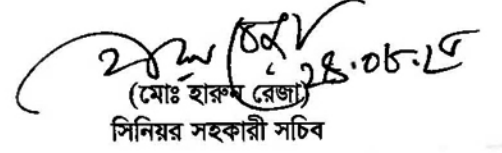 ২৪.০৮.২৫
(মোঃ হারুন রেজা)
সিনিয়র সহকারী সচিব